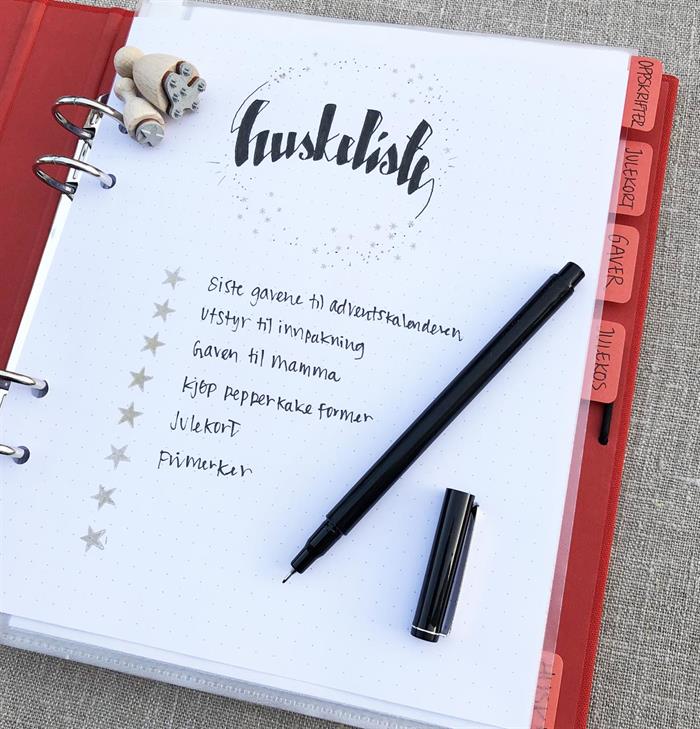 huskeliste
Siste gavene til adventskalenderen
Utstyr til innpakning
Gaven til mamma
Kjøp pepperkake former
Julekort
Frimerker
OPPSKRIFTER
JULEKORT
GAVER
JULEKOS